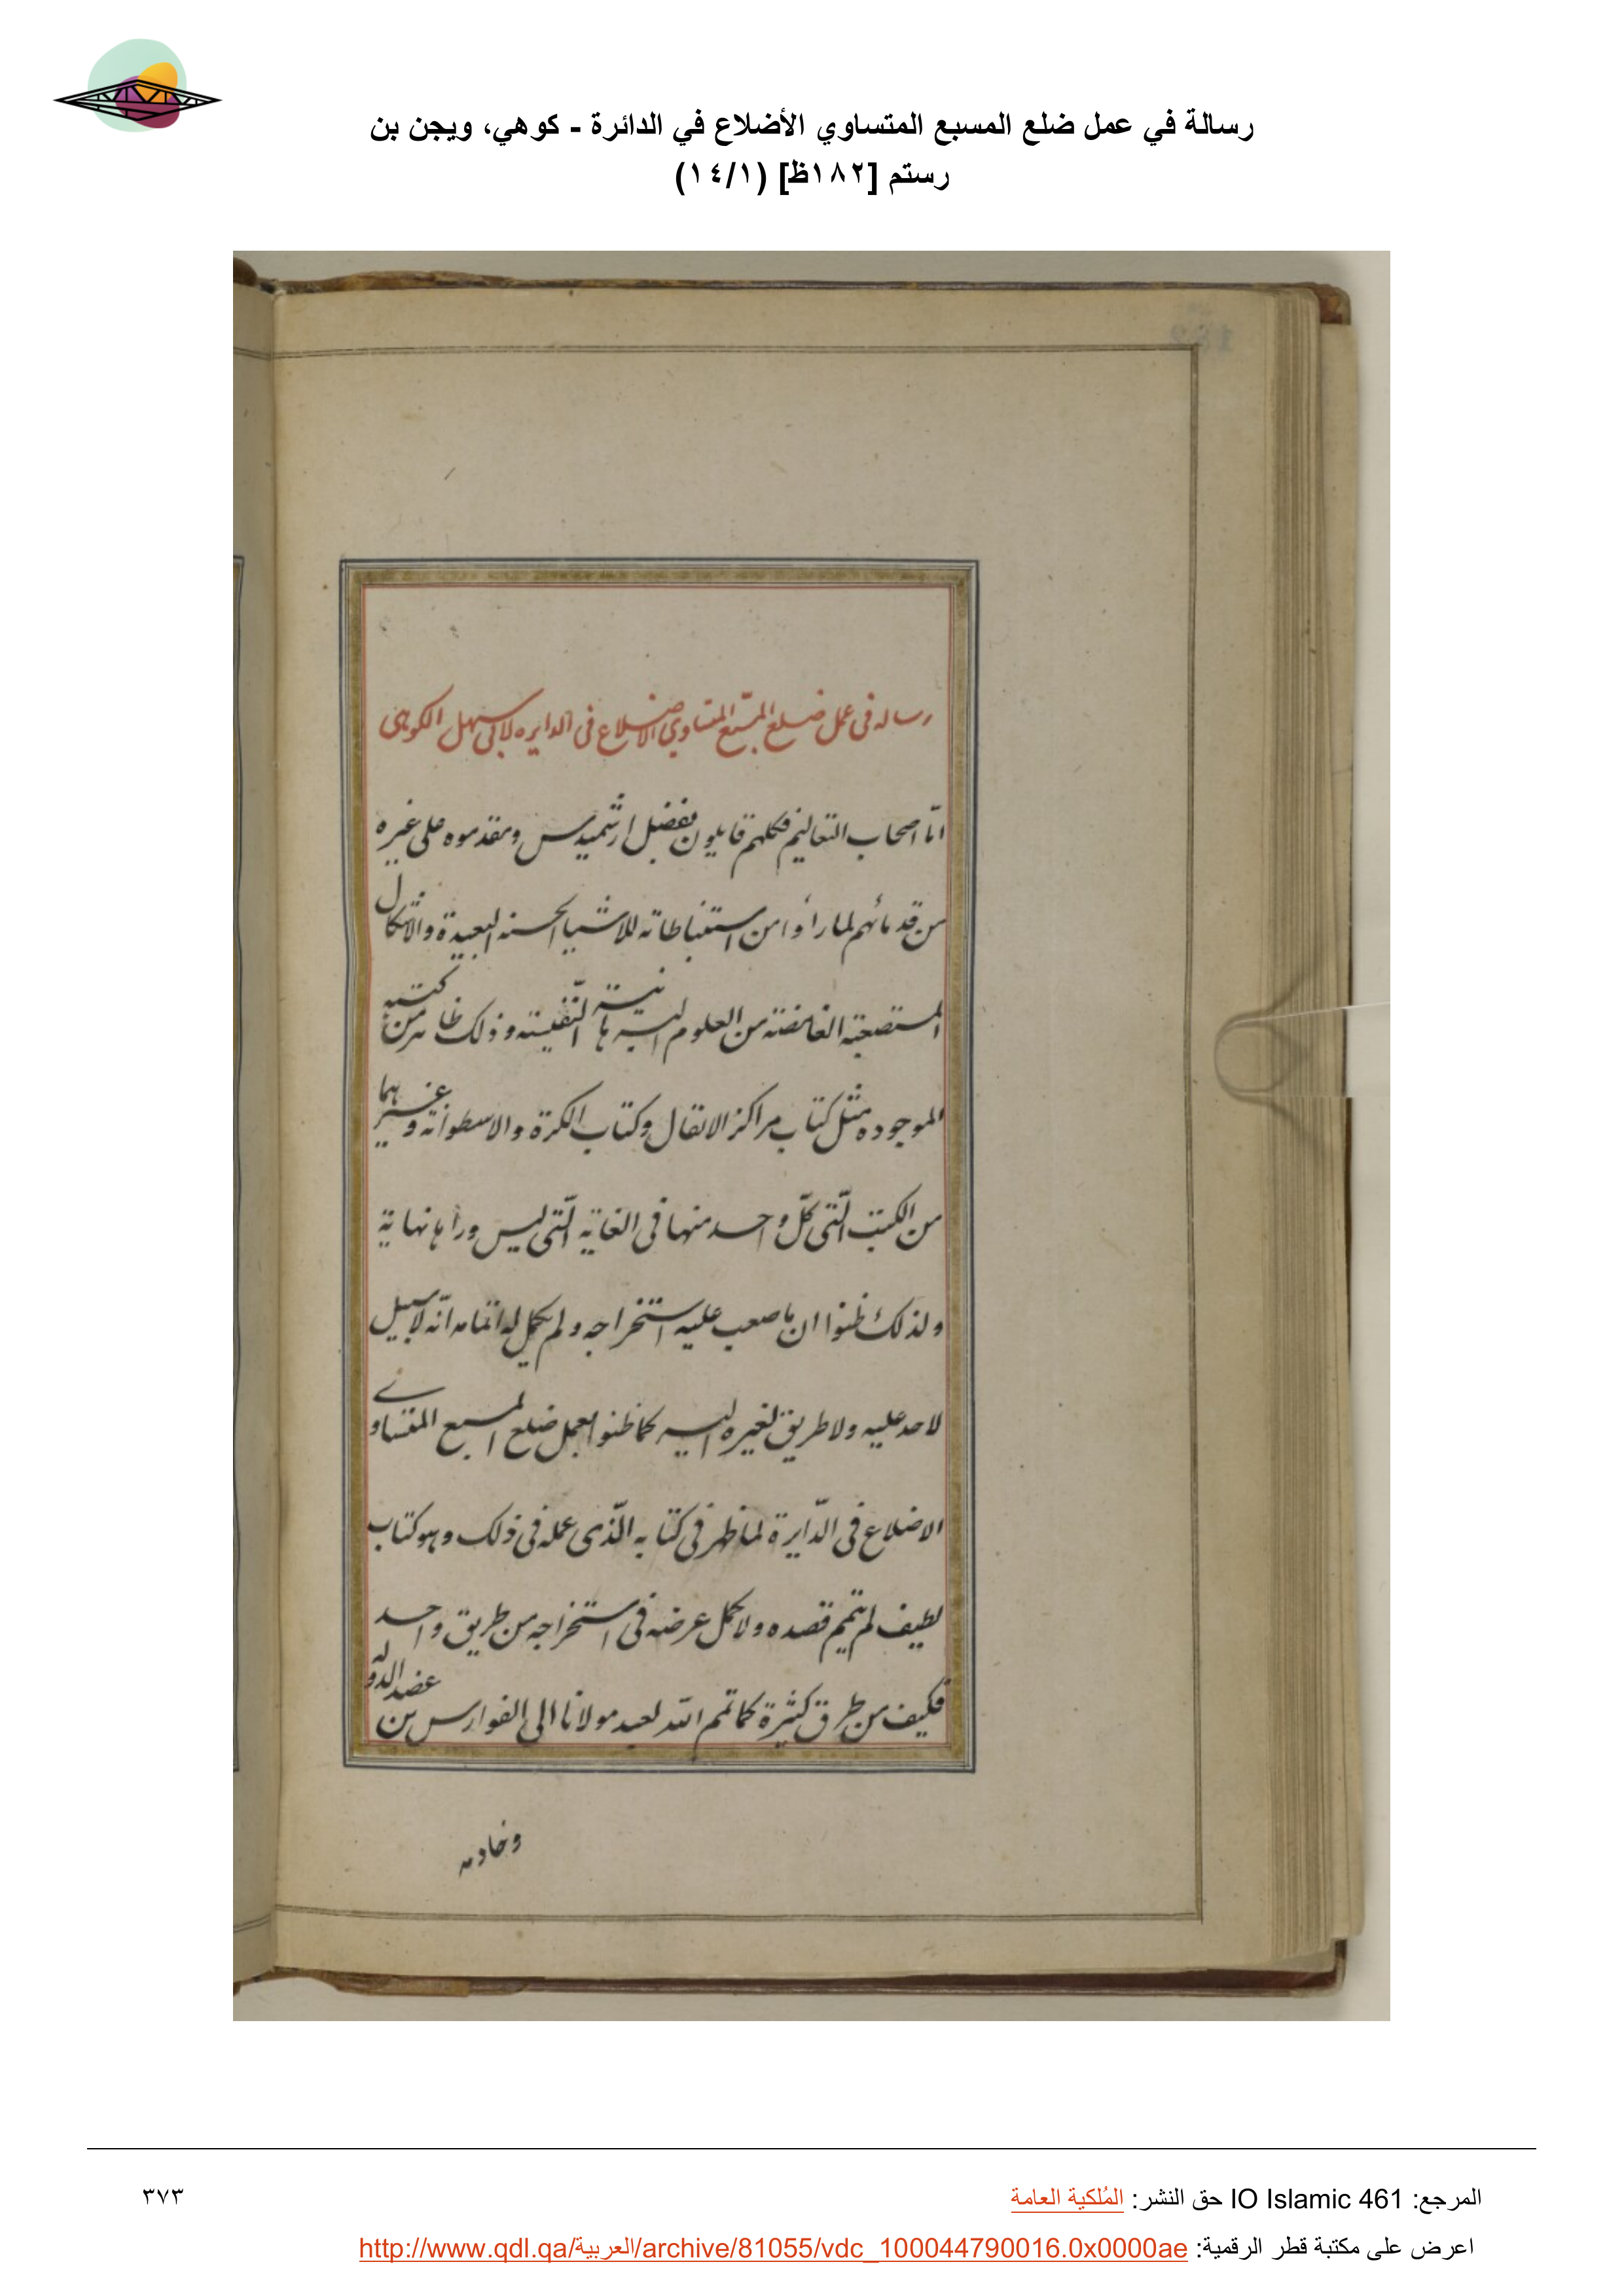 رسالة في عمل ضلع المسبع المتساوي الأضلاع في الدائرة - كوهي، ويجن بن
رستم [١٨٢ظ] (١٤/١)
رساله فی عمل ضلع المسبّع المتساوی الاضلاع فی الدایره لابی سهل الکوهی
امّا اصحاب التعالیم فکلهم قایلون بفضل ارشمیدس ومقدموه علی غیره
من قدمائهم لما رأوا من استنباطاته للاشیا الحسنه البعیدة والاشکال
المستصعبة الغامضة من العلوم البرهانیة النّفیسة وذلک ظاهر من کتبه
الموجوده مثل کتاب مراکز الاثقال وکتاب الکرة والاسطوانة وغیرهما
من الکتب الّتی کلّ واحد منها فی الغایة الّتی لیس وراها نهایة
ولذلک ظنوا ان ما صعب علیه استخراجه ولم یکمل له اتمامه انّه لا سبیل
لاحد علیه ولا طریق لغیره الیه کما ظنوا بعمل ضلع المسبع المتساوی
الاضلاع فی الدّایرة لما ظهر فی کتابه الّذی عمله فی ذلک وهو کتاب
لطیف لم یتمم قصده ولا یکمل غرضه فی استخراجه من طریق واحد
فکیف من طرق کثیرة کما تمم الله لعبد مولانا ابی الفوارس بن عضد الدوله
وخادمه
المرجع: IO Islamic 461 حق النشر: المُلكية العامة
٣٧٣
اعرض على مكتبة قطر الرقمية: http://www.qdl.qa/العربية/archive/81055/vdc_100044790016.0x0000ae